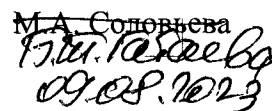 М.А. Соловьева
Б.Ш. Гатаева
09.08.2023